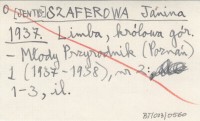 [JENTYS] SZAFEROWA Janina
1937. Limba, królowa gór.
- Młody Przyrodnik (Poznań)
1 (1937-1938), nr 2:
1-3, il.